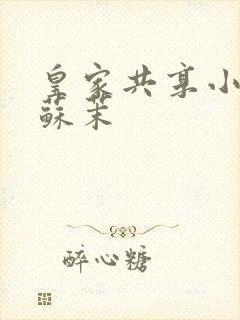 皇家共享小
蘇茉
醉心糖